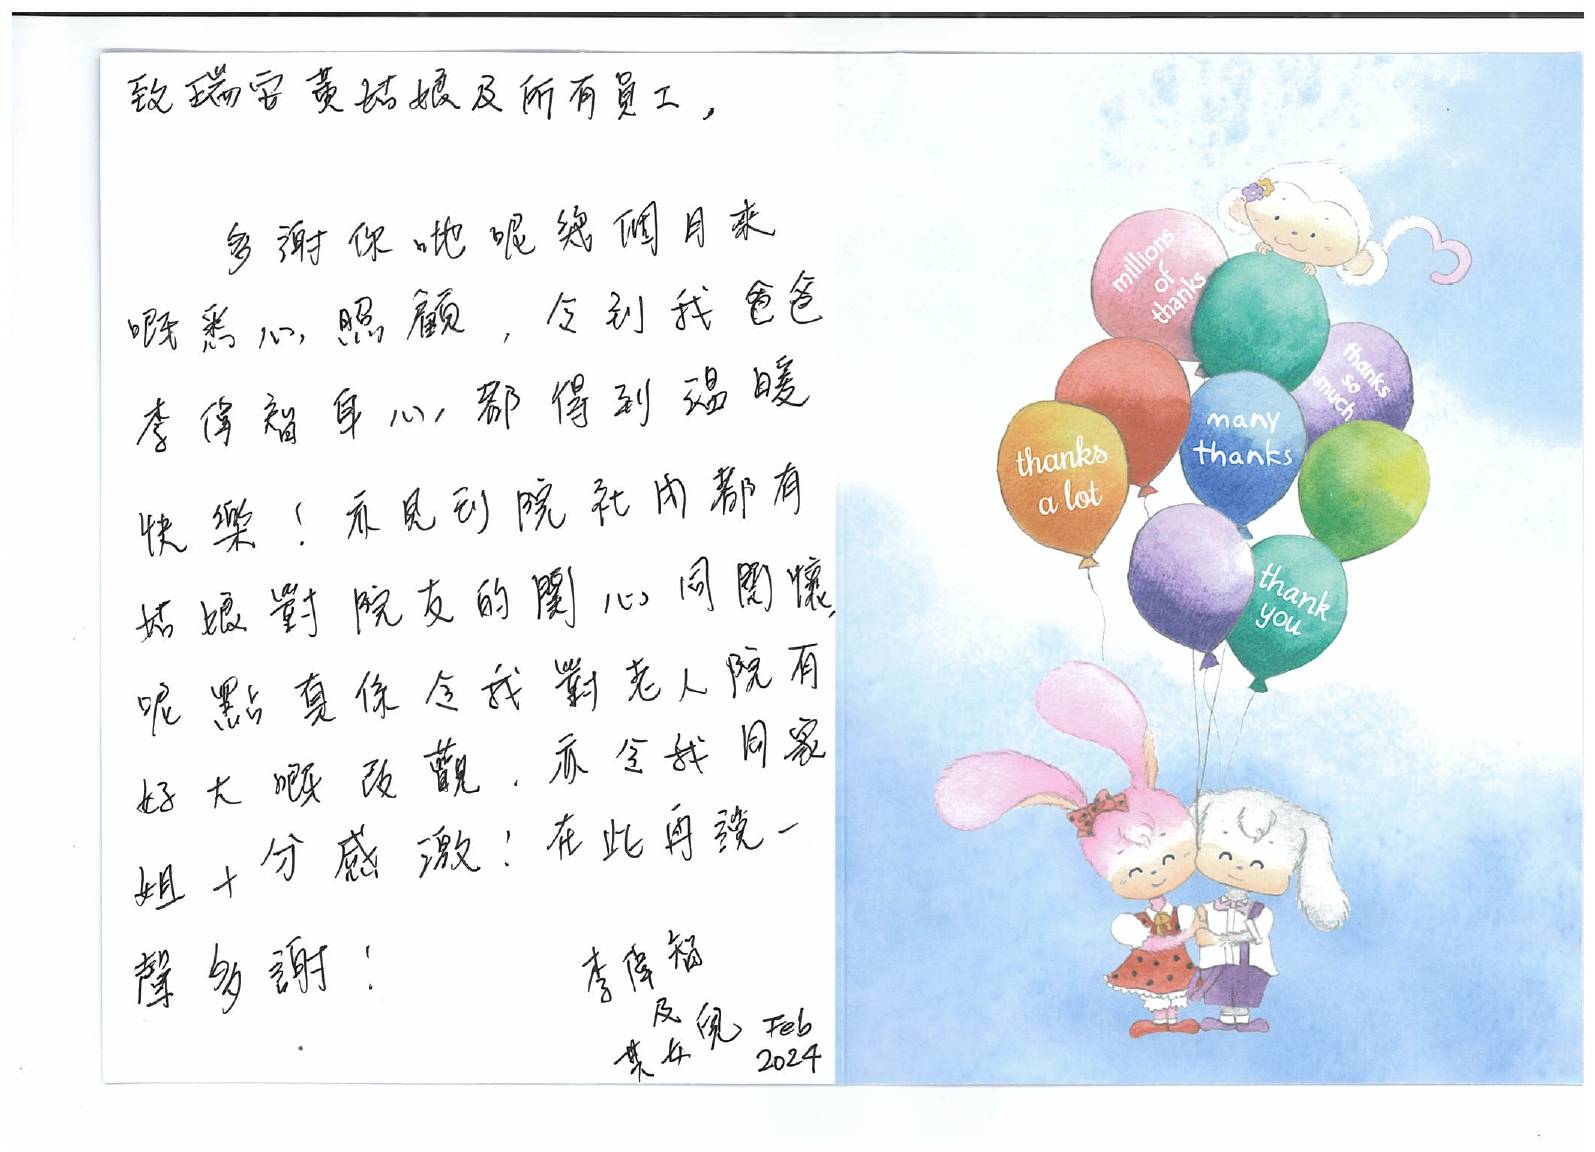 致瑞安黃姑娘及所有員工,
多謝你哋呢幾個月來
嘅悉心照顧,令到我爸爸
李偉智身心都得到溫暖
快樂!亦見到院社內都有
姑娘對院友的關心同關懷,
呢點真係令我對老人院有
好大嘅改觀.亦令我同家
姐十分感激!在此再説一
聲多謝!
李偉智
及
其女兒 Feb
2024
millions
of
thanks
thanks
so
much
many
thanks
thanks
a lot
thank
you